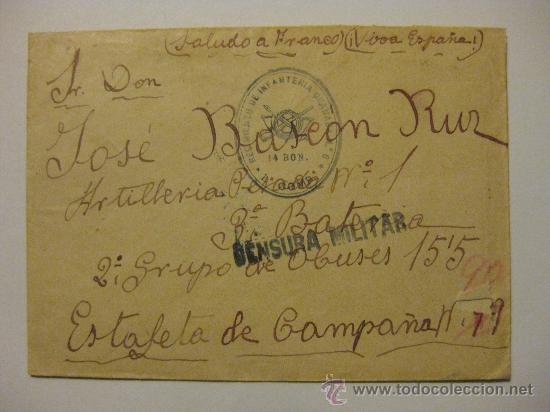 (Saludo a Franco) (¡Viva España!)
Sr. Don
José Bascon Ruz
REGIMIENTO DE INFANTERIA
14 BON.
Artilleria Pesada Nº. 1
3ª Bateria
CENSURA MILITAR
2º. Grupo de Obuses 155
90
Estafeta de Campaña N. 79
© todocoleccion
www.todocoleccion.net